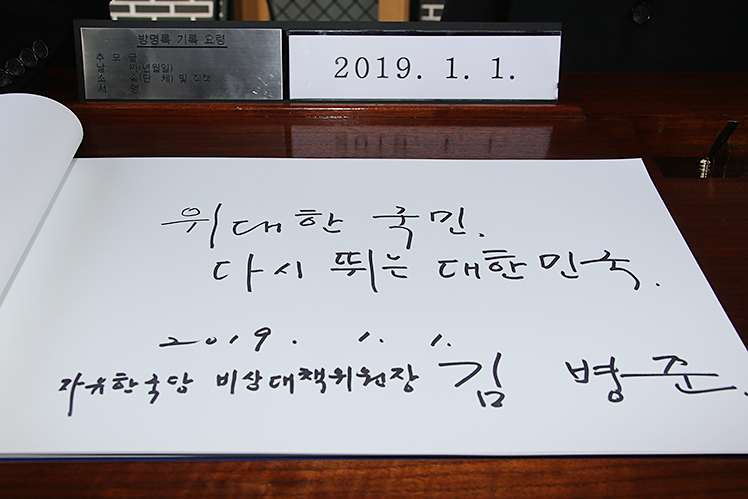 방명록 기록 요령
추 모 글
날 짜(년월일)
소 속(단 체) 및 직책
서 명
2019. 1. 1.
위대한 국민.
다시 뛰는 대한민국.
2019. 1. 1.
자유한국당 비상대책위원장 김 병준.